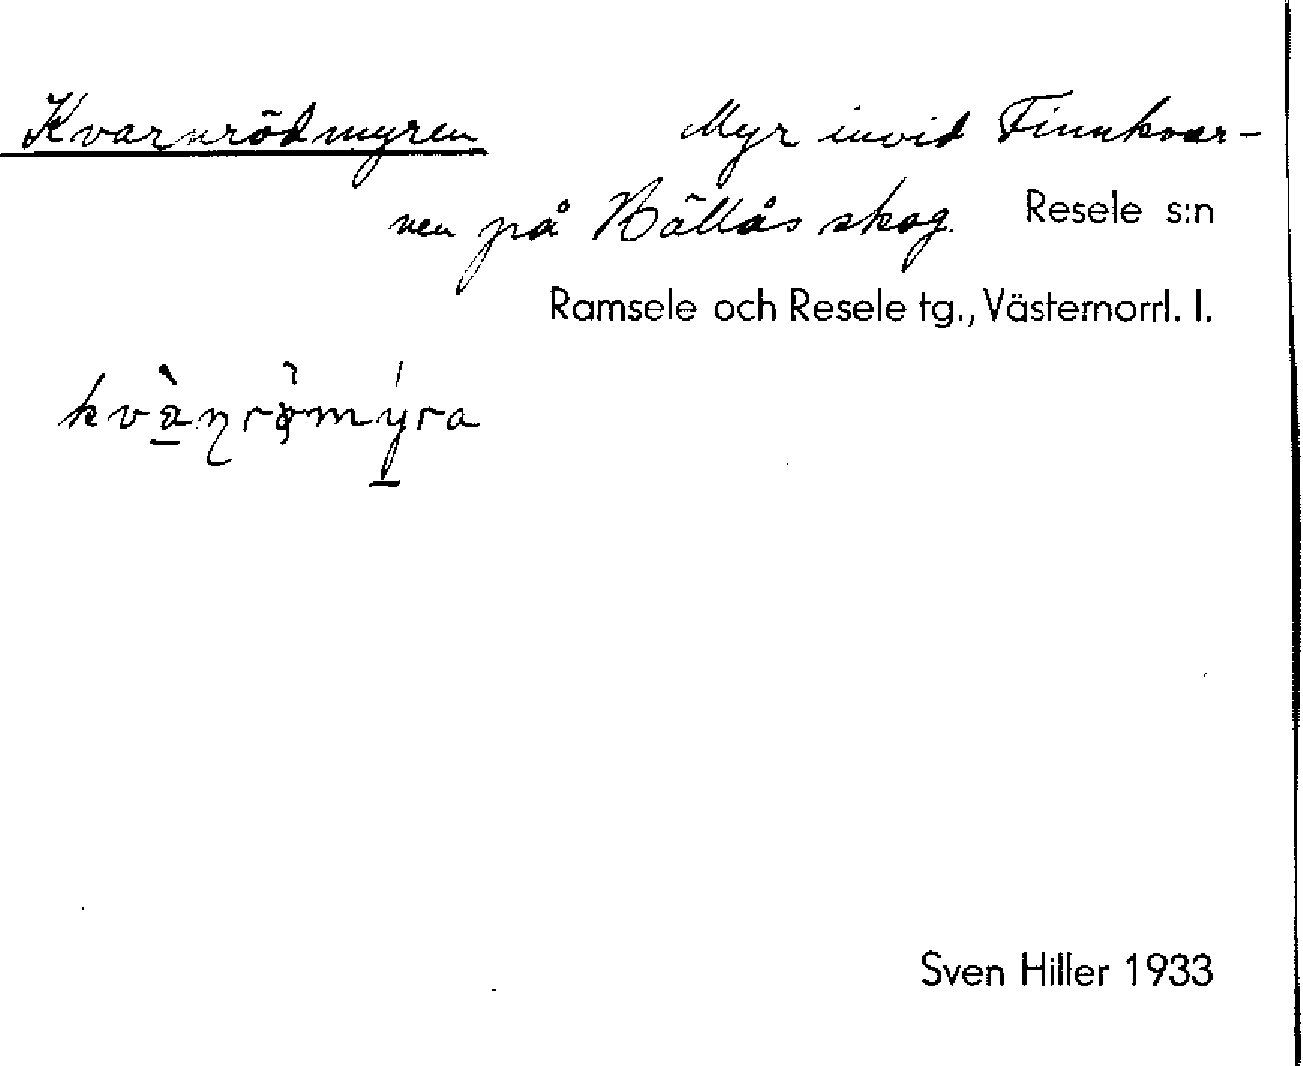 Kvarnrödmyren Myr invid Finnkvar-
nen på Bällås skog.
Resele s:n
Ramsele och Resele tg., Västernorrl. l.
kvànrömýra
Sven Hiller 1933